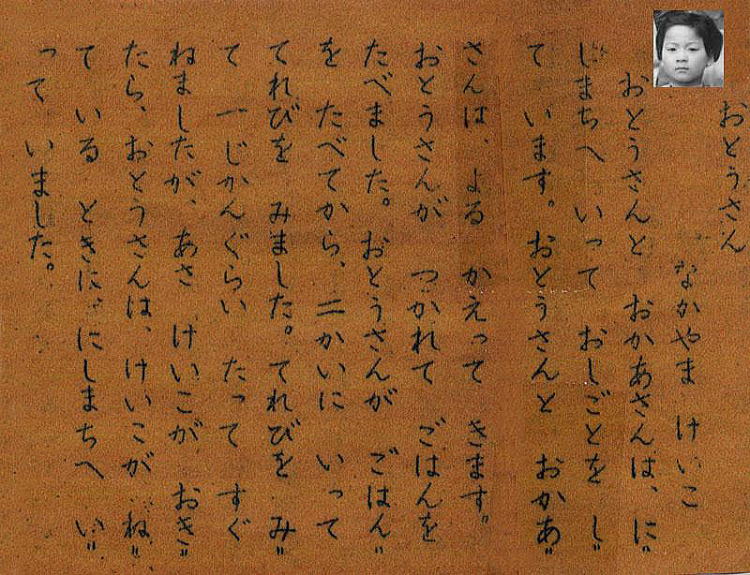 おとうさん
なかやま けいこ
おとうさんと おかあさんは、に〃
しまちへ いって おしごとを し〃
て います。おとうさんと おかあ〃
さんは、よる かえって きます。
おとうさんが つかれて ごはんを
たべました。おとうさんが ごはん〃
を たべてから、二かいに いって
てれびを みました。てれびを み〃
て 一じかんぐらい たって すぐ
ねましたが、あさ けいこが おき〃
たら、おとうさんは、けいこが ね〃
て いる ときに、にしまちへ い〃
って いました。